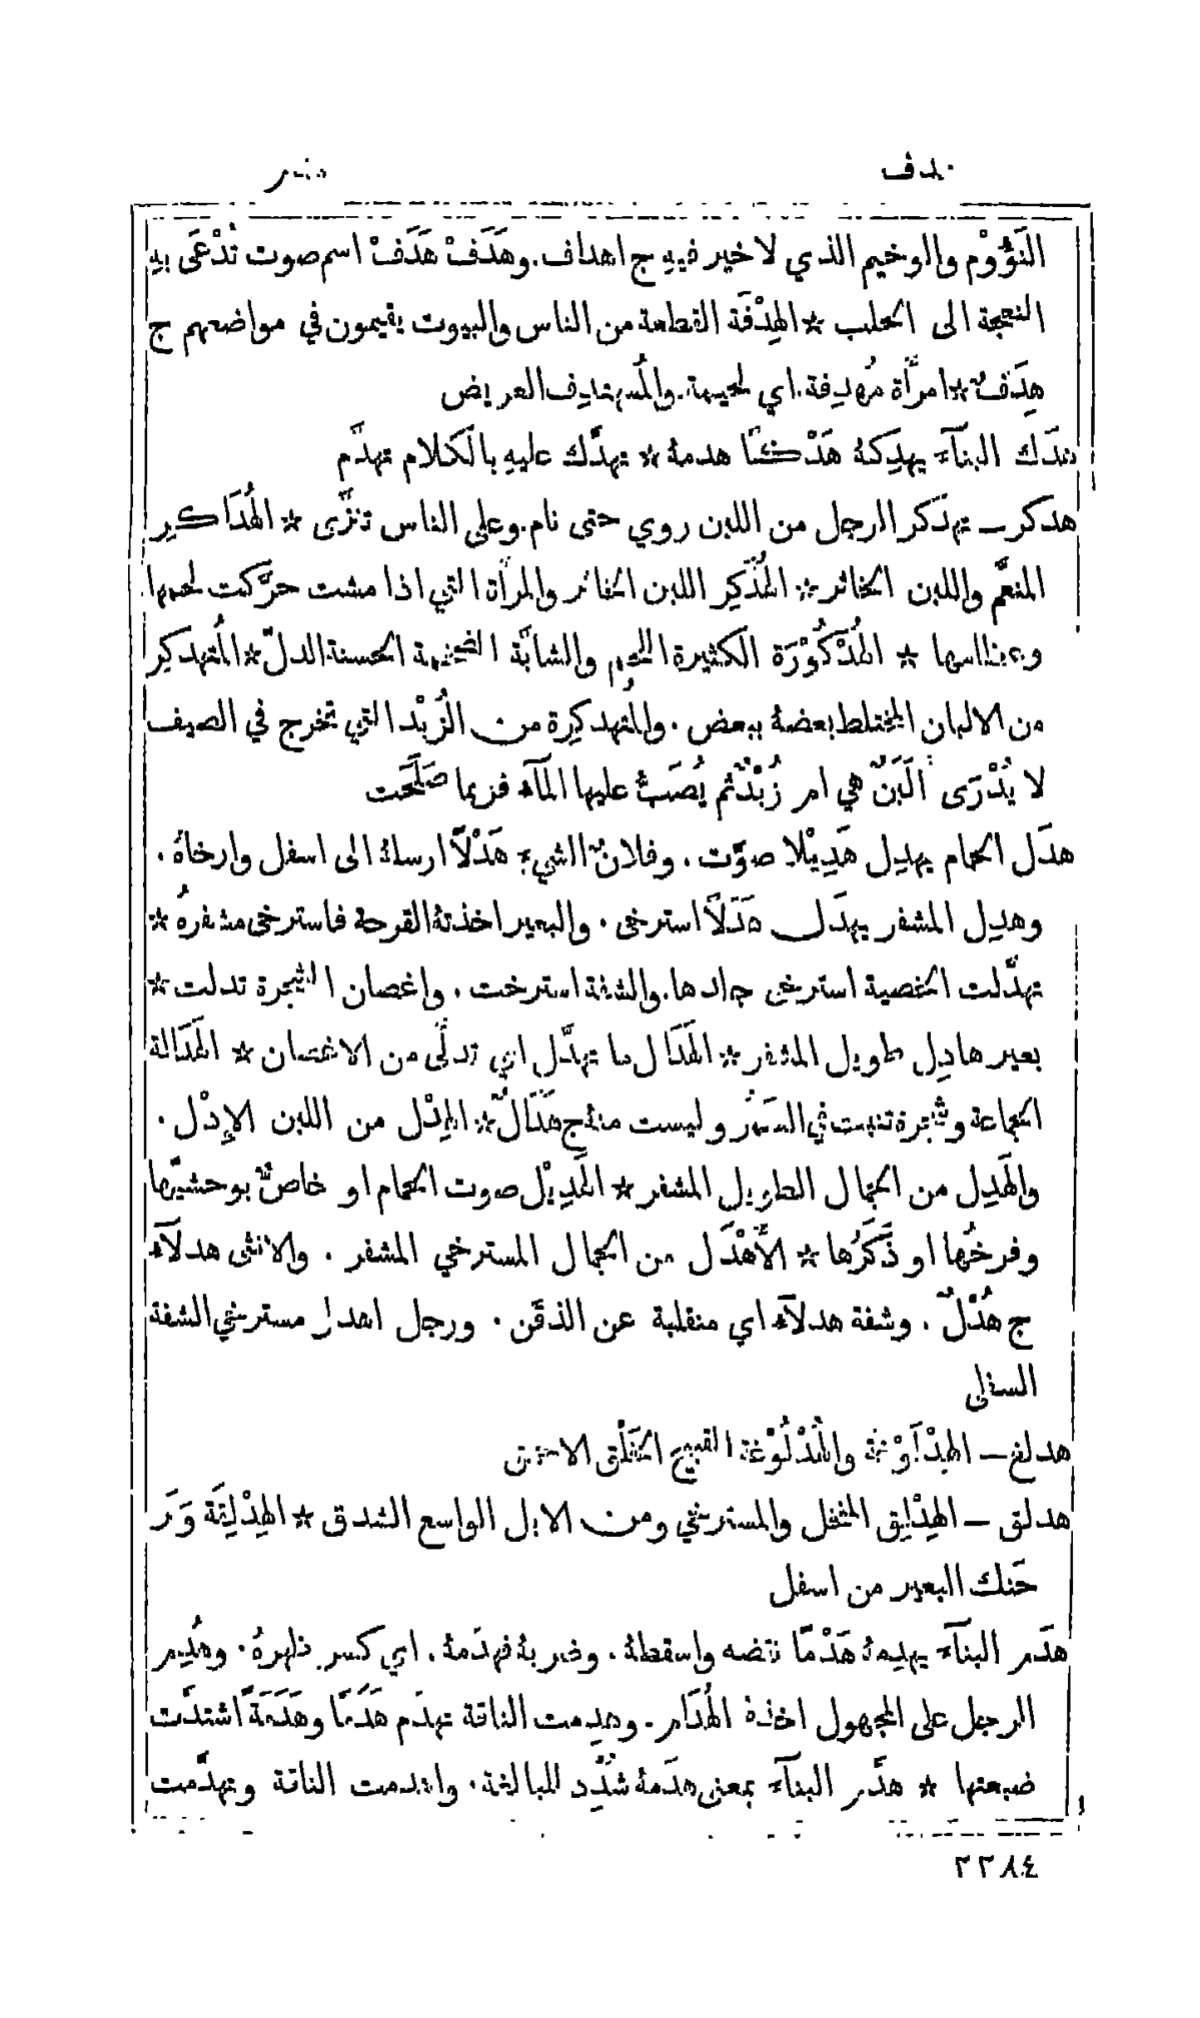 هدف هدم
النَؤُوْم والوخيم الذي لا خير فيهِ ج اهداف. وهَدَفْ هَدَفْ اسم صوت تُدْعَى بهِ
النعجة الى الحلب * الهِدْفَة القطعة من الناس والبيوت يقيمون في مواضعهم ج
هِدَفٌ * امرأَة مُهدِفة. اي لحيمة. والمُستهدِف العريض
هدَك البنآء يهدِكهُ هَدْكًا هدمهُ * تهدَّك عليهِ بالكلام تهدَّم
هدكر — تهدكر الرجل من اللبن روي حتى نام. وعلى الناس تنزَّى * الهُدَاكِر
المنعَّم واللبن الخاثر * الهُدَكِر اللبن الخاثر والمرأَة التي اذا مشت حرَّكت لحمها
وعظامها * الهُدْكُوْرَة الكثيرة اللحم والشابَّة الضخمة الحسنة الدلّ * المُتهدكِر
من الالبان المختلط بعضهُ ببعض. والمُتهدكِرة من الزُبْد التي تخرج في الصيف
لا يُدْرَى أَلَبَنٌ هي ام زُبْدٌ ثم يُصَبُّ عليها المآء فربما صَلَحَت
هدَل الحمام يهدِل هَدِيْلا صوَّت. وفلانٌ الشيء هَدْلًا ارسلهُ الى اسفل وارخاهُ.
وهدِل المشفر يهدَل هَدَلًا استرخى. والبعير اخذتهُ القرحة فاسترخى مشفرهُ *
تهدَّلت الخصية استرخى جلدها. والشفة استرخت. واغصان الشجرة تدلت *
بعير هادِل طويل المشفر * الهَدَال ما تهدَّل اي تدلَّى من الاغصان * الهَدَالة
الجماعة وشجرة تنبت في السَمُر وليست منهُ ج هَدَالٌ * الهِدْل من اللبن الإِدْل.
والهَدِل من الجمال الطويل المشفر * الهَدِيْل صوت الحمام او خاصٌّ بوحشيّها
وفرخُها او ذَكَرُها * الأَهْدَل من الجمال المسترخي المشفر. والانثى هدلآء
ج هُدْلٌ. وشفة هدلآء اي منقلبة عن الذقَن. ورجل اهدل مسترخي الشفة
السفلى
هدلغ — الهِدْلَوْغة والهُدْلُوْغة القبيح الخَلْق الاحمق
هدلق — الهِدْلِق المنخل والمسترخي ومن الابل الواسع الشدق * الهِدْلِقَة وَبَر
حَنك البعير من اسفل
هدَم البنآء يهدِمهُ هَدْمًا نقضه واسقطهُ. وضربهُ فهدَمهُ. اي كسر ظهرهُ. وهُدِم
الرجل على المجهول اخذهُ الهُدَام. وهدِمت الناقة تهدَم هَدَمًا وهَدَمَةً اشتدَّت
ضبعتها * هدَّم البنآء بمعنى هدَمهُ شُدِّد للمبالغة. واهدمت الناقة وتهدَّمت
٢٢٨٤